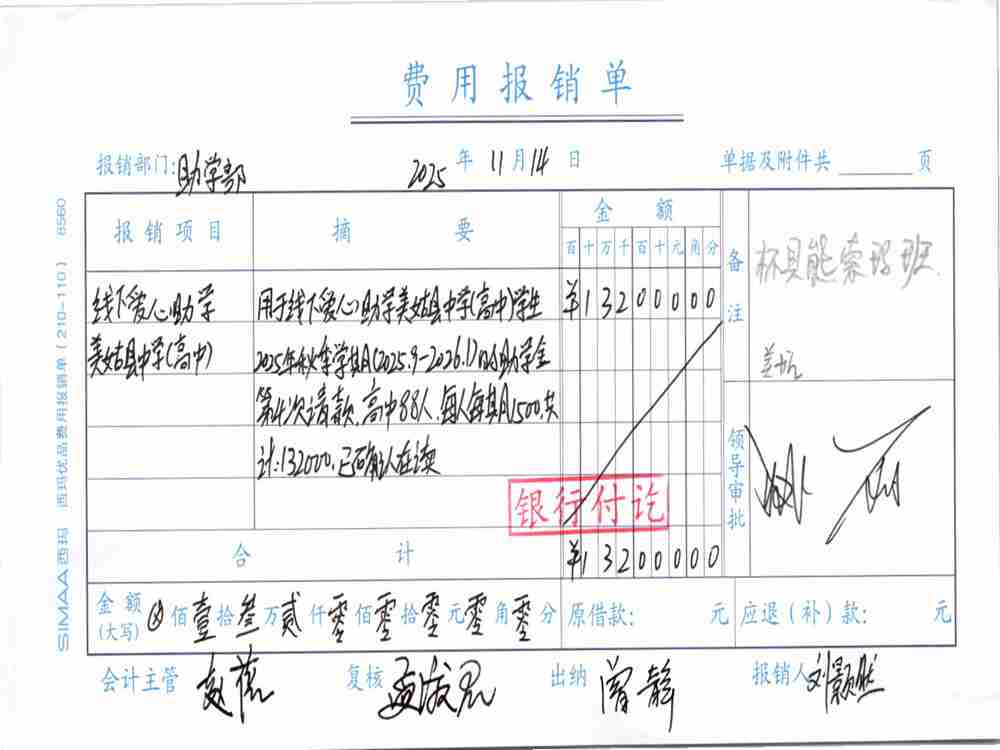 费用报销单
报销部门:助学部 2025年11月14日 单据及附件共 页
报销项目 摘要 金额 备注
百十万千百十元角分
杯具熊索玛班.
线下爱心助学 用于线下爱心助学美姑县中学(高中)学生 ¥13200000
美姑县中学(高中) 2025年秋季学期(2025.9-2026.1)的助学金
第4次请款,高中88人,每人每期1500,共
计:132000,已确认在读
领导审批
银行付讫
合计 ¥13200000
金额(大写) ⊗佰壹拾叁万贰仟零佰零拾零元零角零分 原借款: 元 应退(补)款: 元
会计主管 复核 出纳 曾静 报销人 刘颢然
SIMAA西玛 西玛优品费用报销单(210-110) 8560